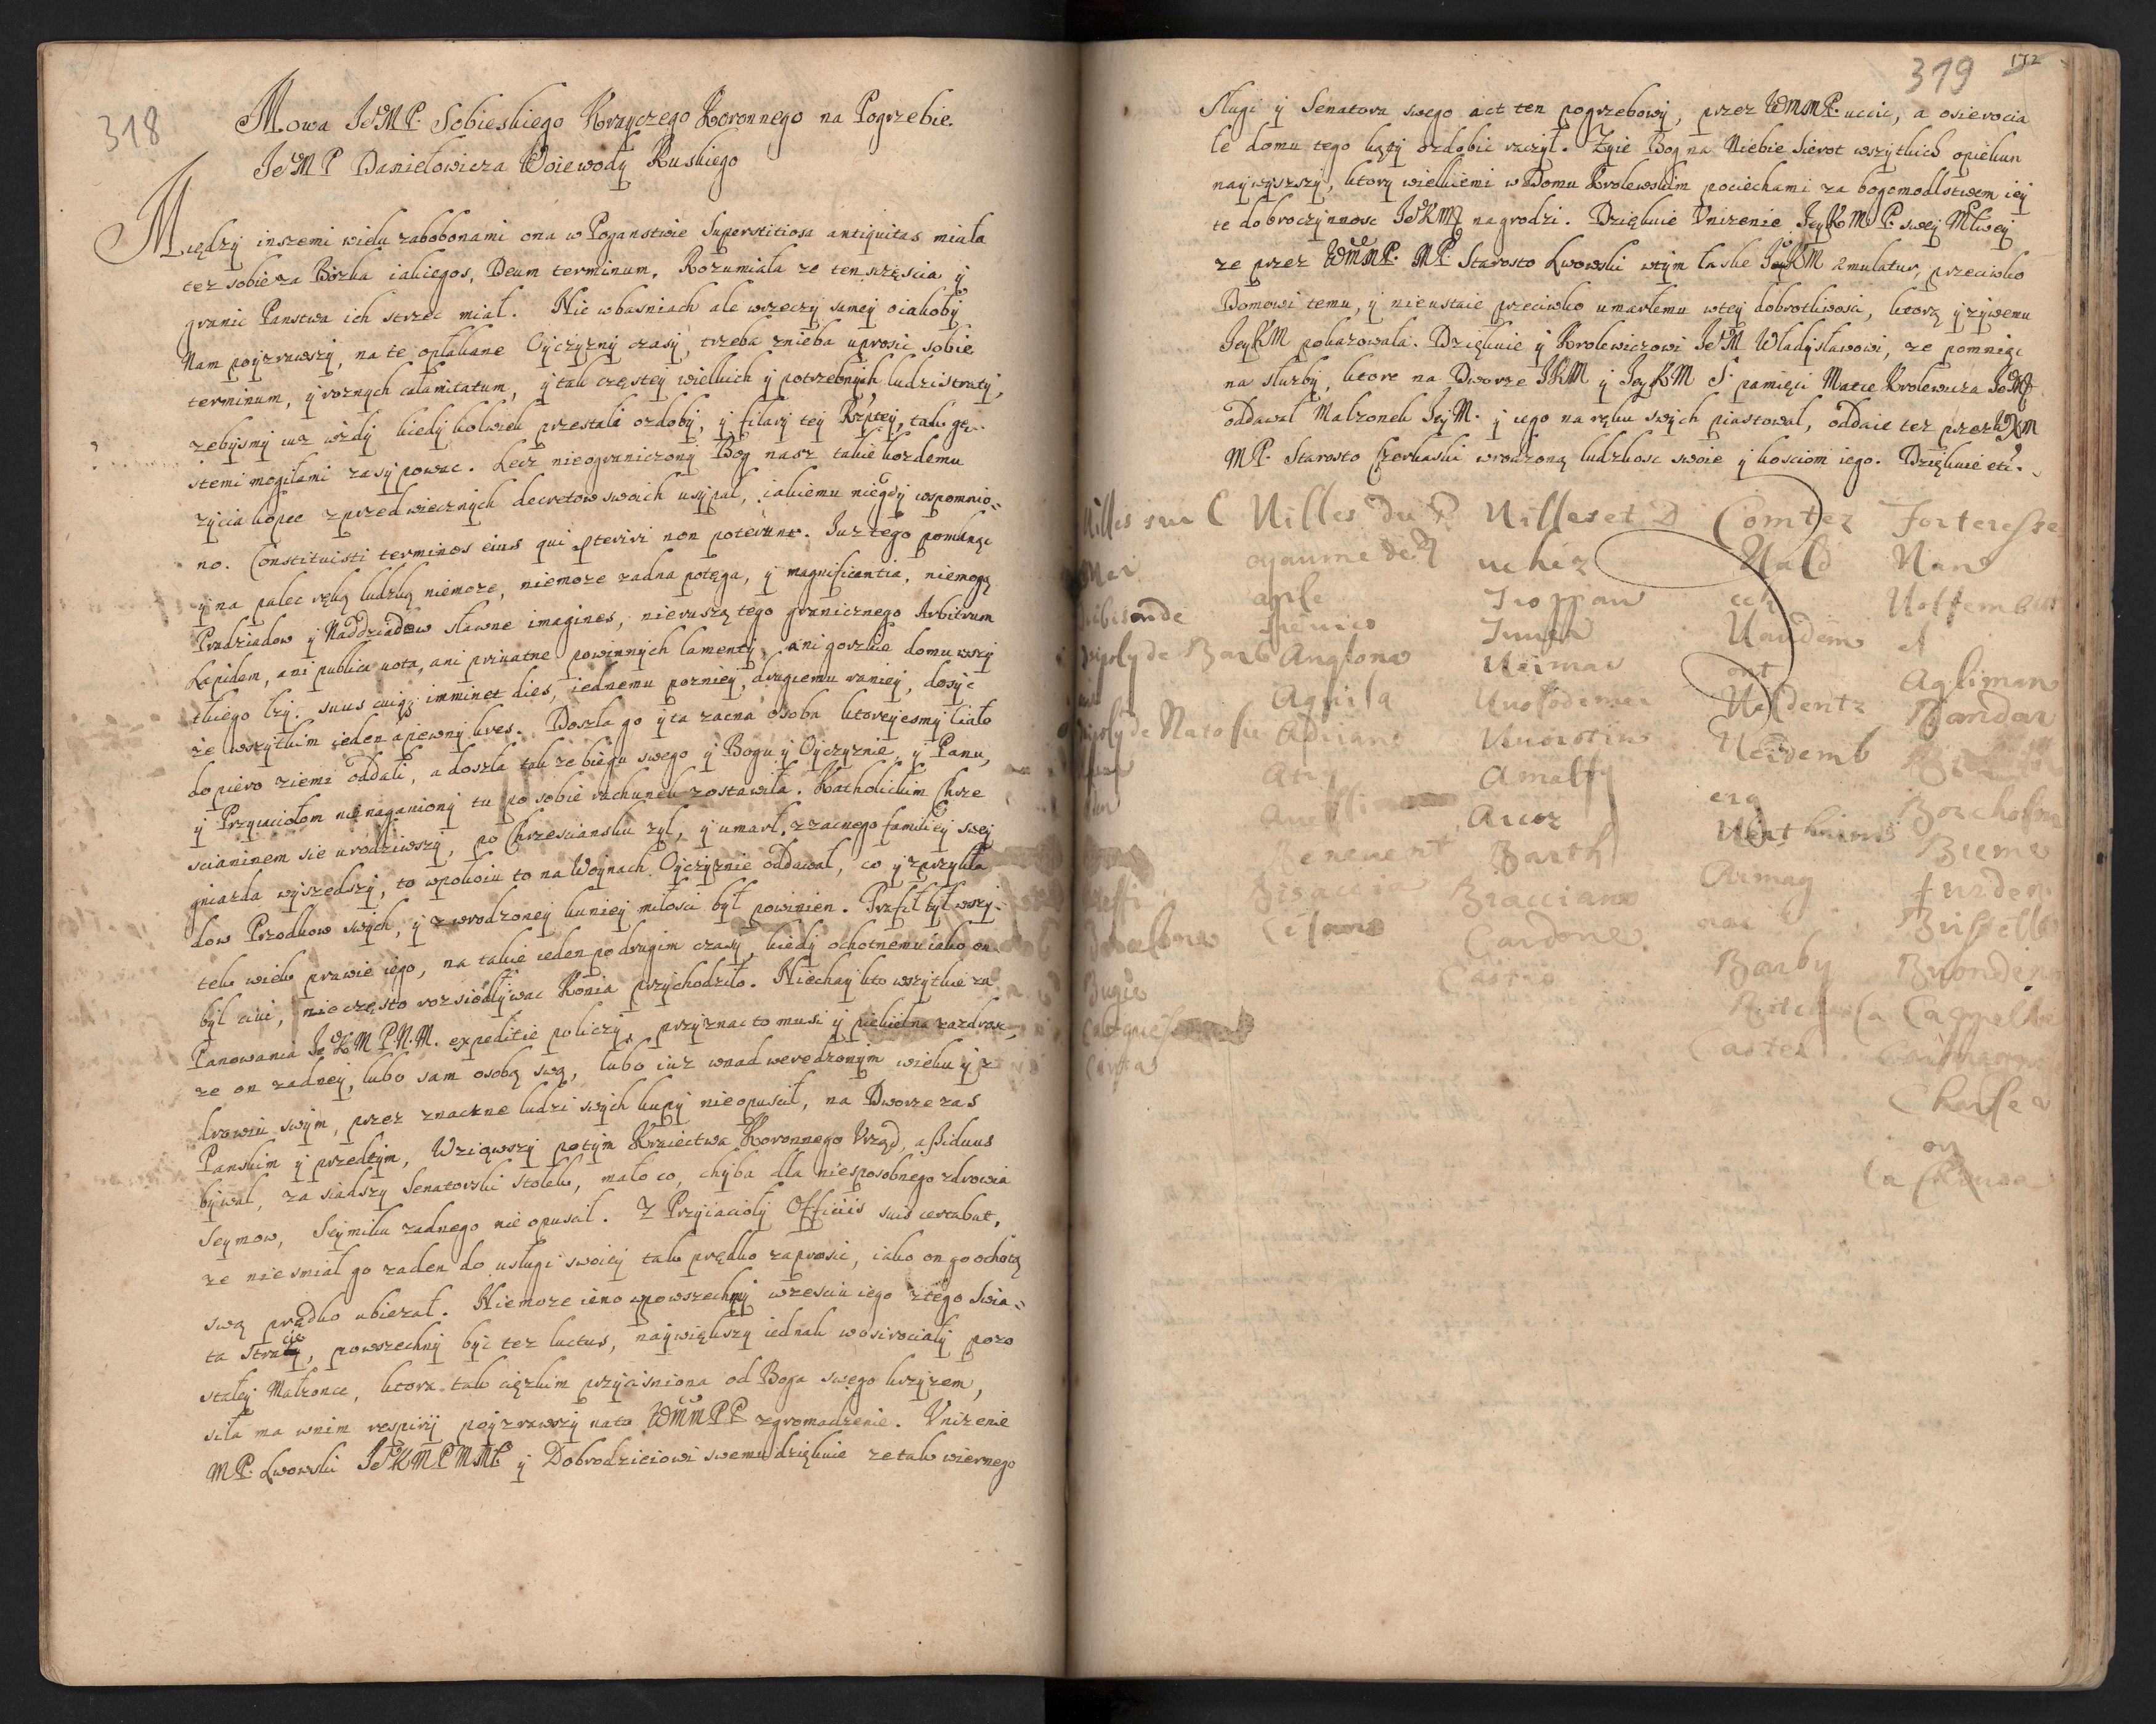 318
Mowa JeMP. Sobieskiego Krayczego Koronnego na Pogrzebie.
JeMP Daniełowicza Woiewody Ruskiego
Między inszemi wielu zabobonami ona w Poganstwie Superstitiosa antiquitas miała
tez sobie za Bozka iakiegos, Deum terminum. Rozumiała ze ten sczęscia y
granic Panstwa ich strzec miał. Nie w basniach ale w rzeczy samey
Nam poyzrawszy, na te opłakane Oyczyzny czasy, trzeba z nieba uprosic sobie
terminum, y roznych calamitatum, y tak częstey wielkich y potrzebnych ludzi straty,
zebysmy iuz wzdy kiedykolwiek przestali ozdoby, y filary tey Rzptey, tak gę-
stemi mogiłami zasypowac. Lecz nieograniczony Bog nasz takie kozdemu
zycia kopce z przedwiecznych decretow swoich usypał, iakiemu niegdy wspomnio-
no. Constituisti terminos eius qui pteriri non poterunt. Iuz tego pomknąc
y na palec ręką ludzką niemoze, niemoze zadna potęga, y magnificentia, niemogą
Pradziadow y Naddziadow sławne imagines, nieruszą tego granicznego Arbitrum
Lapidem, ani publica vota, ani priuatne powinnych lamenty, ani gorzkie domu wszy
tkiego łzy. suus cuiq; imminet dies, iednemu pozniey, drugiemu raniey, dosyc
ze wszytkim ieden a pewny kres. Doszła go y ta zacna osoba ktorey esmy ciało
dopiero ziemi oddali, a doszła tak ze biegu swego y Bogu y Oyczyznie, y Panu,
y Przyiaciołom nienaganiony tu po sobie rachunek zostawiła. Katholickim Chrze
scianinem sie urodziwszy, po Chrzesciansku zył, y umarł, z zacnego familiey swey
gniazda wyszedszy, to w pokoiu to na Woynach Oyczyznie oddawał, co y z przykła
dow Przodkow swych, y z wrodzoney ku niey miłosci był powinien. Trafił był wszy-
tek wiek prawie iego, na takie ieden po drugim czasy, kiedy ochotnemu iako on
był ciui, nie często rozsiodływac Konia przychodziło. Niechay kto wszytkie za
Panowania JeKMPNM. expeditie policzy, przyznac to musi y piekielna zazdrosc,
ze on zadney, lubo sam osobą swą, lubo iuz w nadweredzonym wieku y z
drowiu swym, przez znaczne ludzi swych kupy nieopuscił, na Dworze zas
Panskim y przedtym, Wziąwszy potym Kraiectwa Koronnego Vrząd, assiduus
bywał, zasiadszy Senatorski stołek, mało co, chyba dla niesposobnego zdrowia
Seymow, Seymiku zadnego nie opuscił. Z Przyiacioły Officiis suis certabat,
ze niesmiał go zaden do usługi swoiey tak prędko zaprosic, iako on go ochotą
swą prędko ubiezał. Niemoze ieno w powszechney w zesciu iego z tego swia-
ta stracie, powszechny byc tez luctus, naywiększy iednak w osirociały pozo
stałey Małzonce, ktora tak cięzkim przycisniona od Boga swego krzyzem,
siła ma w nim respiry poyzrawszy na to WMMPP zgromadzenie. Vnizenie
MP. Lwowski JeKMPMM y Dobrodzieiowi swemu dziękuie ze tak wiernego
319 172
Sługi y Senatora swego act ten pogrzebowy, przez WMMP. uccic, a osierocia
łe domu tego kąty ozdobic raczył. Zyie Bog na Niebie Sierot wszytkich opiekun
naywyszszy, ktory wielkiemi w Domu Krolewskim pociechami za bogomodlstwem iey
te dobroczynnosc JeKM nagrodzi. Dziękuie Vnizenie JeyKMP. swey Młwey
ze przez WMMP. MP. Starosto Lwowski w tym łaske JeKM æmulatur, przeciwko
Domowi temu, y nieustaie przeciwko umarłemu w tey dobrotliwosci, ktorą y zywemu
JeyKM pokazowała. Dziękuie y Krolewiczowi JeM Władysławowi, ze pomniąc
na słuzby, ktore na Dworze JKM y JeyKM S. pamięci Matce Krolewicza JeM
oddawał Małzonek JeyM. y iego na ręku swych piastował, oddaie tez przez
MP. Starosto Czerkaski wrodzoną ludzkosc swoie y kosciom iego. Dziękuie etc.
Villes sur C Villes du R Villes et D Comtez Forteresse
Mer oyaume de N uchez Vald Nan
aple Troppau eck Vottembur
Trevico Vaudem
Tripoly de Barb Anglona Veimar ont Agliman
Aquila Veldentz Bandar
Tripoly de Natolie Adriano
Atry Amalfy
Arcos Bocholm
Benevent Barth Breme
Bisaccia Bracciano Armag
Barcelone Citano Cardone nac Brissello
Bugie Castro Barby
Castel Cappelle
Charle
oy